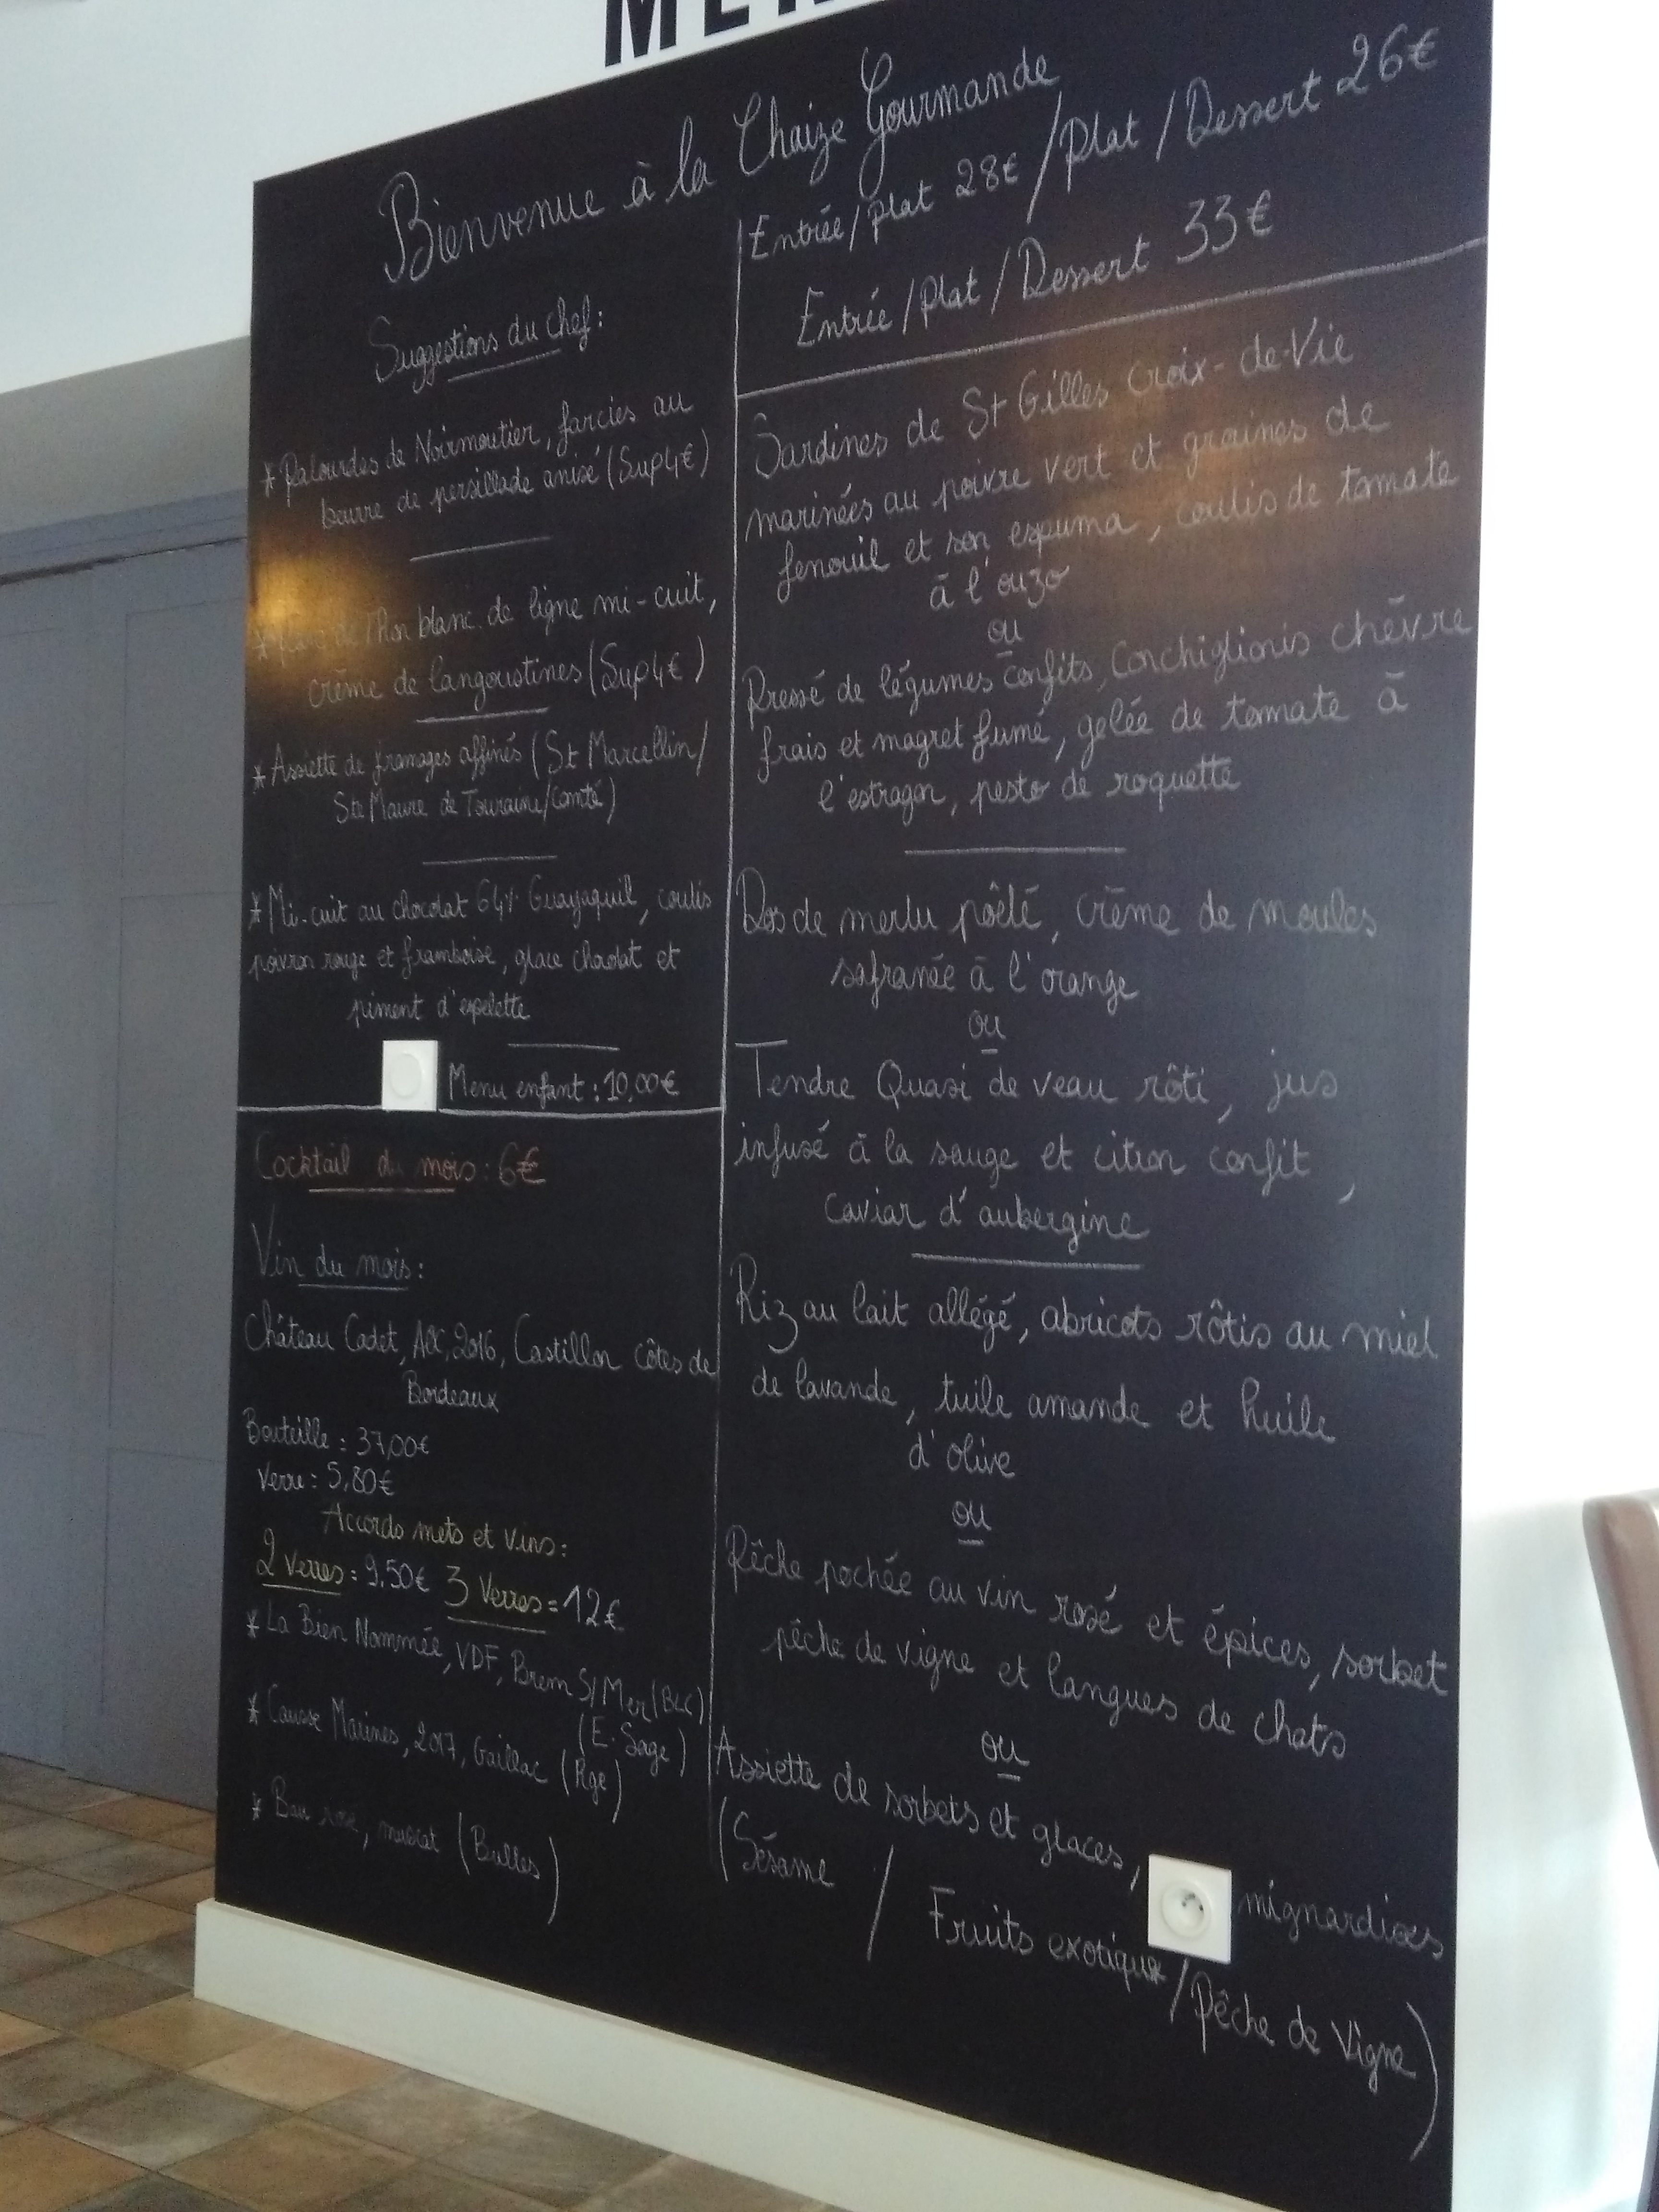 Bienvenue à la Chaize Gourmande
Suggestions du chef :
* Palourdes de Noirmoutier, farcies au
beurre de persillade anisé (Sup 4€)
de thon blanc de ligne mi-cuit,
crème de langoustines (Sup 4€)
* Assiette de fromages affinés (St Marcellin/
Ste Maure de Touraine/Comté)
* Mi-cuit au chocolat 64% Guayaquil, coulis
poivron rouge et framboise, glace chocolat et
piment d'espelette
Menu enfant : 10,00€
Cocktail du mois : 6€
Vin du mois :
Château Cadet, AOC, 2016, Castillon côtes de
Bordeaux
Bouteille : 37,00€
Verre : 5,80€
Accords mets et vins :
2 Verres = 9,50€ 3 Verres = 12€
* La Bien Nommée, VDF, Brem S/Mer (BLC)
(E. Sage)
* Causse Marines, 2017, Gaillac (Rge)
* Bau rosé, muscat (Bulles)
Entrée/plat 28€ / Plat / Dessert 26€
Entrée / plat / Dessert 33€
Sardines de St Gilles Croix-de-Vie
marinées au poivre vert et graines de
fenouil et son espuma, coulis de tomate
à l'ouzo
ou
Pressé de légumes confits, Conchiglionis chèvre
frais et magret fumé, gelée de tomate à
l'estragon, pesto de roquette
Dos de merlu poêlé, crème de moules
safranée à l'orange
ou
Tendre Quasi de veau rôti, jus
infusé à la sauge et citron confit,
caviar d'aubergine
Riz au lait allégé, abricots rôtis au miel
de lavande, tuile amande et huile
d'olive
ou
Pêche pochée au vin rosé et épices, sorbet
pêche de vigne et langues de chats
ou
Assiette de sorbets et glaces, mignardises
(Sésame / Fruits exotique / Pêche de Vigne)